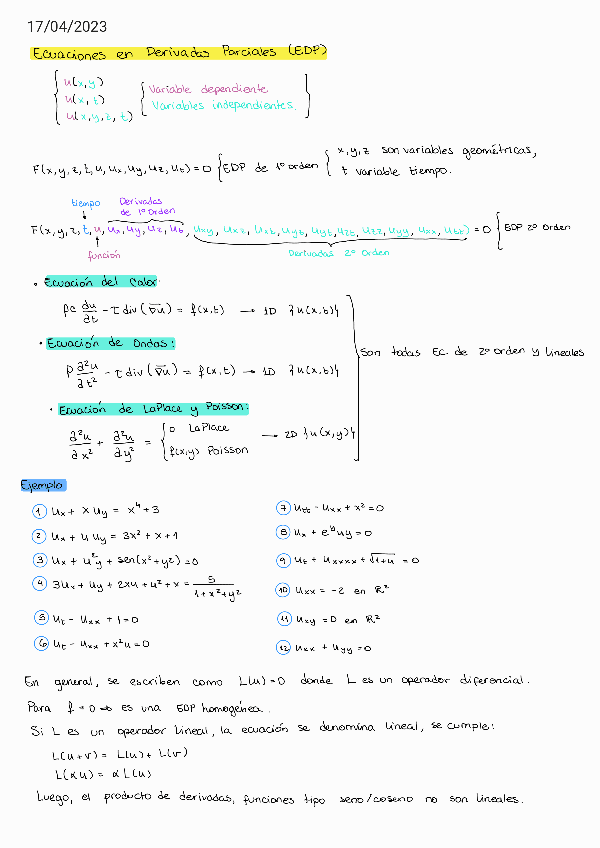 17/04/2023
Ecuaciones en Derivadas Parciales (EDP)
u(x,y)
u(x,t)
u(x,y,z,t)
Variable dependiente
Variables independientes.
F(x,y,z,t,u,ux,uy,uz,ut) = 0 { EDP de 1º orden { x,y,z son variables geométricas,
t variable tiempo.
tiempo
Derivadas de 1º Orden
F(x,y,z,t,u,ux,uy,uz,ut, uxy, uxz, uxt, uyz, uyt, uzt, uzz, uyy, uxx, utt) = 0 { EDP 2º Orden
función
Derivadas 2º Orden
• Ecuación del Calor:
ρc du/∂t - τ div (∇u) = f(x,t) → 1D {u(x,t)}
• Ecuación de Ondas:
ρ ∂²u/∂t² - τ div (∇u) = f(x,t) → 1D {u(x,t)}
Son todas Ec. de 2º orden y lineales
• Ecuación de LaPlace y Poisson:
∂²u/∂x² + ∂²u/∂y² = { 0 LaPlace
f(x,y) Poisson
→ 2D {u(x,y)}
Ejemplo
1 ux + x uy = x⁴ + 3
2 ux + u uy = 3x² + x + 1
3 ux + u²y + sen(x² + y²) = 0
4 3ux + uy + 2xu + u² + x = 5/(1 + x² + y²)
5 ut - uxx + 1 = 0
6 ut - uxx + x²u = 0
7 utt - uxx + x² = 0
8 ux + eᵘ uy = 0
9 ut + uxxxx + √(1+u) = 0
10 uxx = -2 en R²
11 uxy = 0 en R²
12 uxx + uyy = 0
En general, se escriben como L(u) = 0 donde L es un operador diferencial.
Para f = 0 ⇒ es una EDP homogénea.
Si L es un operador lineal, la ecuación se denomina lineal, se cumple:
L(u+v) = L(u) + L(v)
L(αu) = α L(u)
Luego, el producto de derivadas, funciones tipo seno/coseno no son lineales.